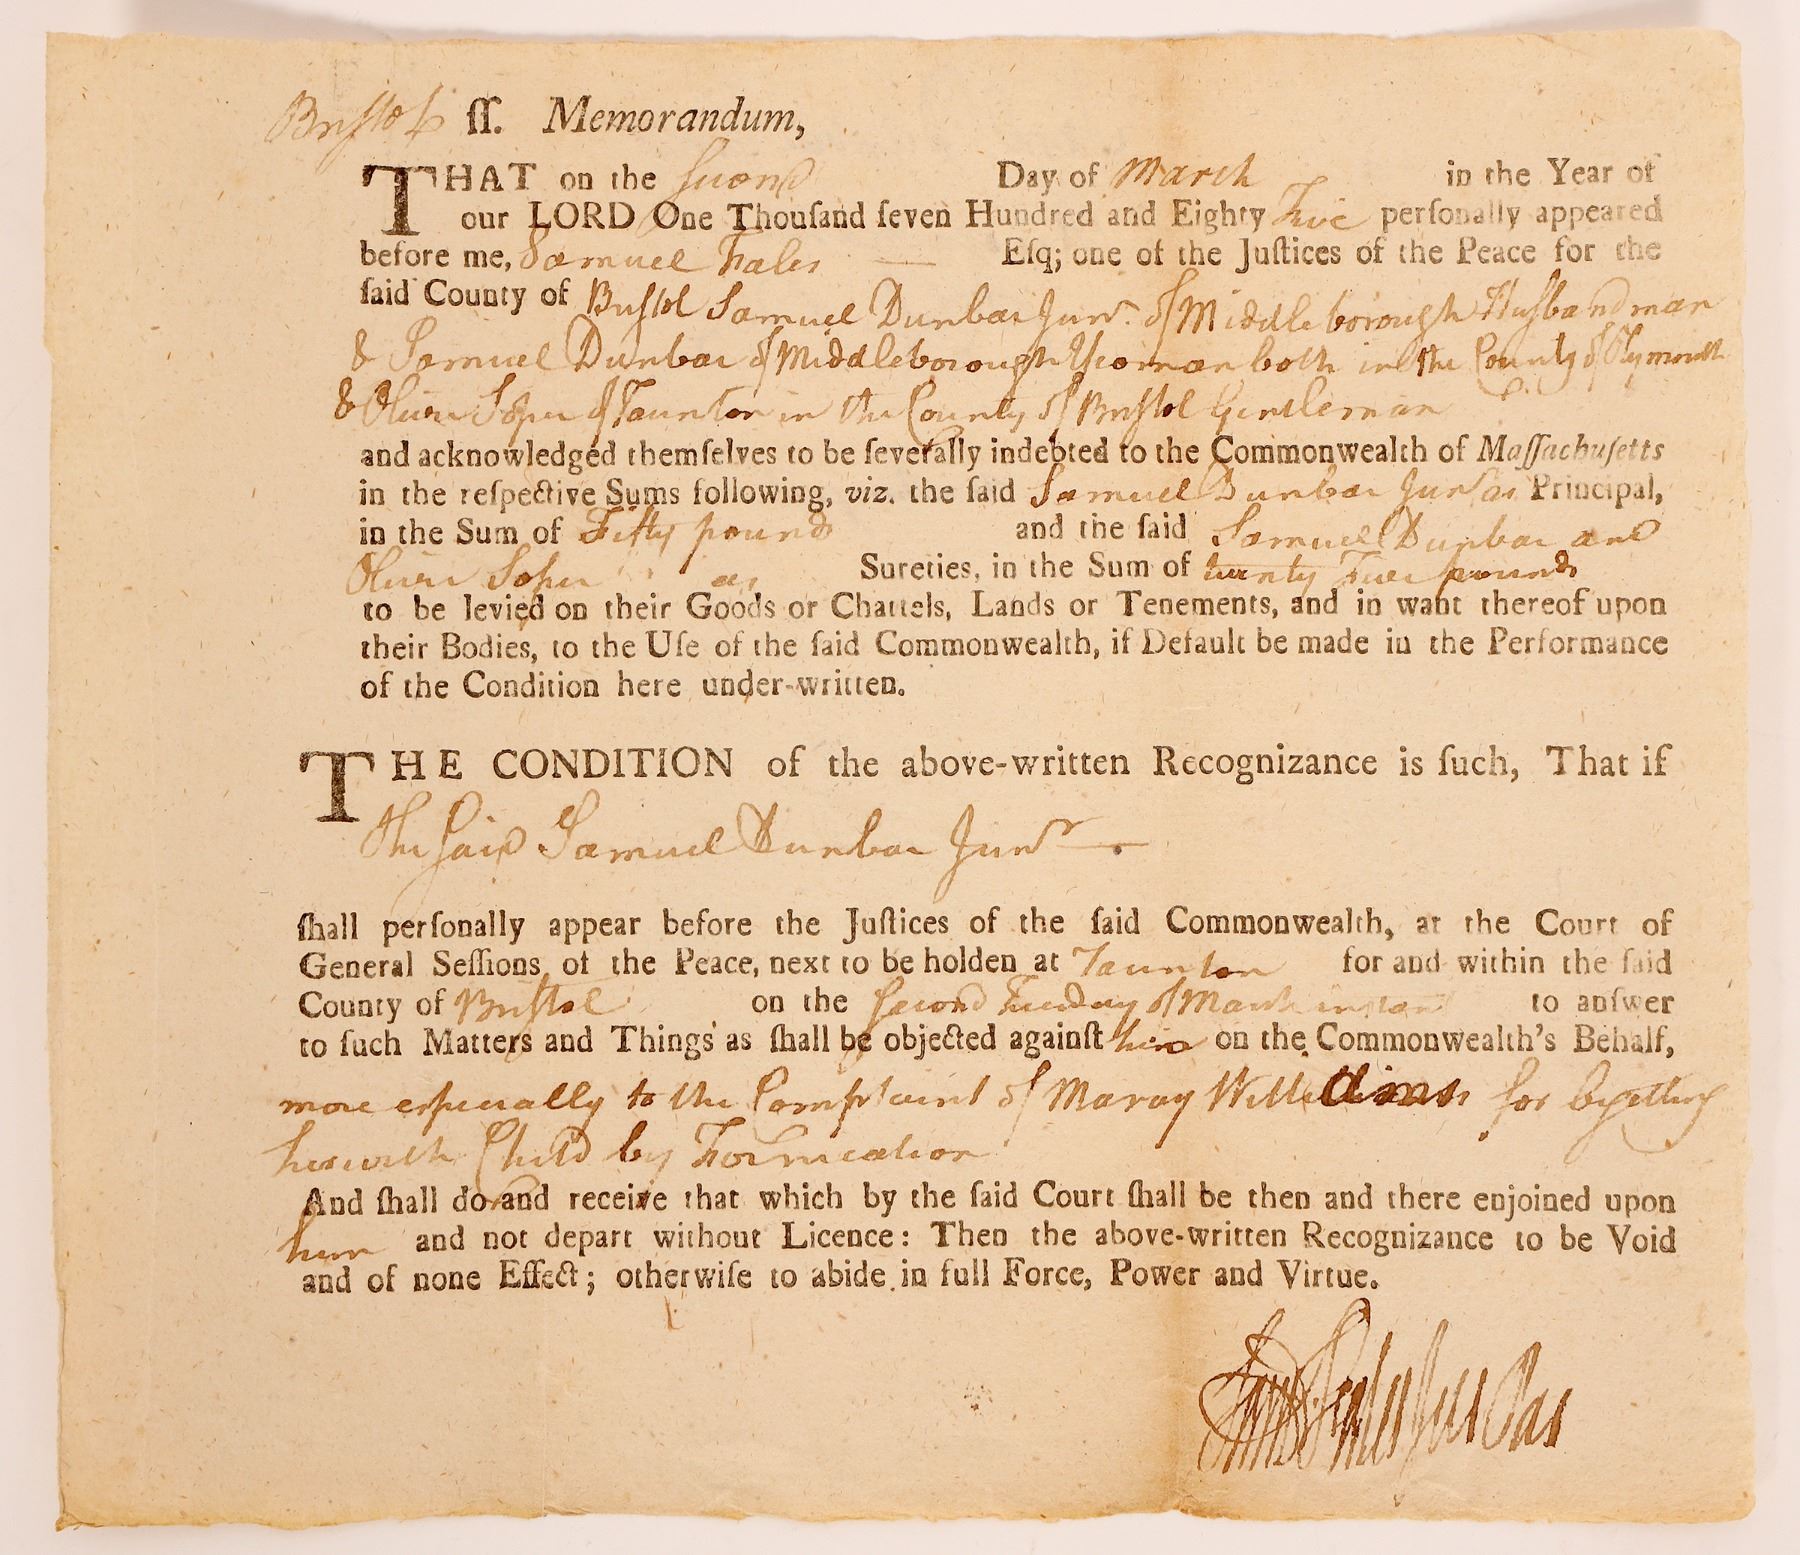 Bristol ſſ. Memorandum,
THAT on the Second Day of March in the Year of
our LORD One Thouſand ſeven Hundred and Eighty Five perſonally appeared
before me, Samuel Fales — Eſq; one of the Juſtices of the Peace for the
ſaid County of Briſtol Samuel Dunbar Junr. of Middleborough Huſbandman
& Samuel Dunbar of Middleborough Yeoman both in the County of Plymouth
& Oliver Soper of Taunton in the County of Briſtol Gentleman
and acknowledged themſelves to be ſeverally indebted to the Commonwealth of Maſſachuſetts
in the reſpective Sums following, viz. the ſaid Samuel Dunbar Junr as Principal,
in the Sum of Fifty pounds and the ſaid Samuel Dunbar and
Oliver Soper as Sureties, in the Sum of twenty Five pounds
to be levied on their Goods or Chattels, Lands or Tenements, and in want thereof upon
their Bodies, to the Uſe of the ſaid Commonwealth, if Default be made in the Performance
of the Condition here under-written.
THE CONDITION of the above-written Recognizance is ſuch, That if
the ſaid Samuel Dunbar Junr —
ſhall perſonally appear before the Juſtices of the ſaid Commonwealth, at the Court of
General Seſſions of the Peace, next to be holden at Taunton for and within the ſaid
County of Briſtol on the Second Tuesday of March instant to anſwer
to ſuch Matters and Things as ſhall be objected againſt him on the Commonwealth's Behalf,
more especially to the Complaint of Maray for begetting
her with Child by Fornication
And ſhall do and receive that which by the ſaid Court ſhall be then and there enjoined upon
him and not depart without Licence: Then the above-written Recognizance to be Void
and of none Effect; otherwiſe to abide in full Force, Power and Virtue.
Sam Fales Jus Pac